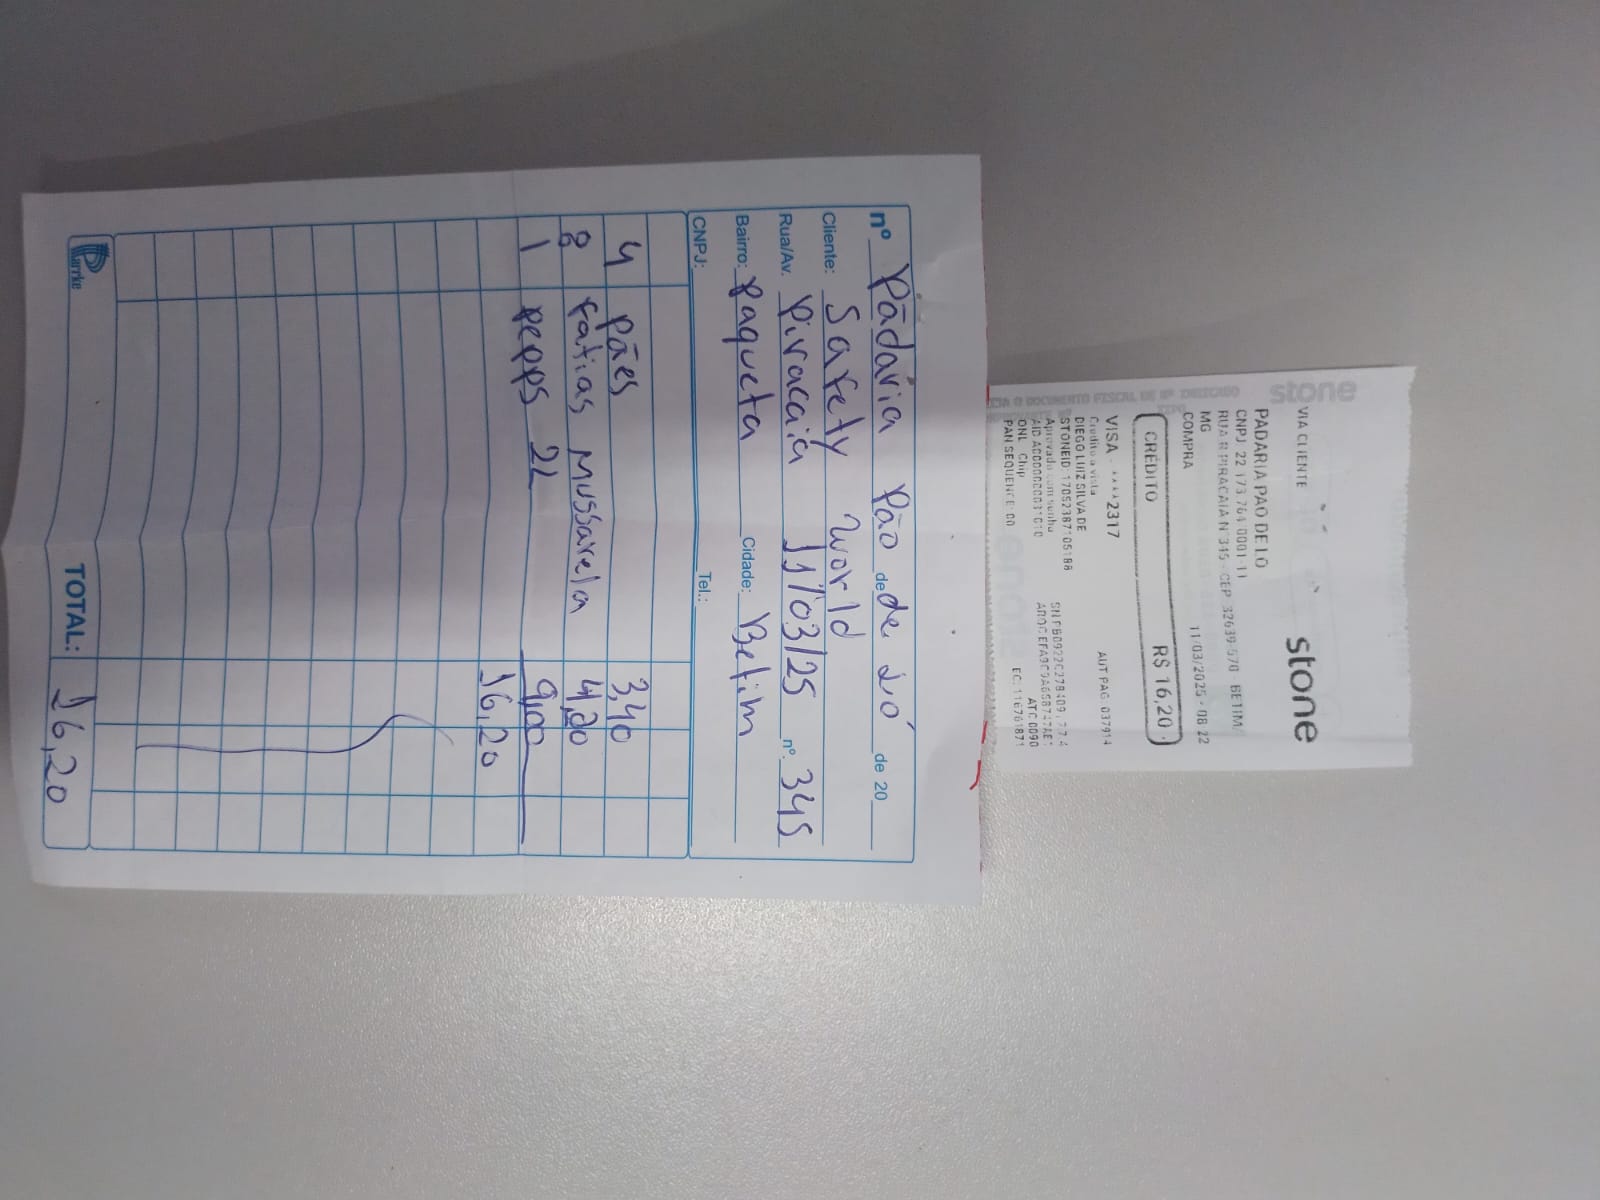 stone
VIA CLIENTE
stone
PADARIA PAO DE LO
CNPJ 22 173 764 0001-11
RUA R PIRACAIA N 345 - CEP 32639-570 - BETIM/
MG
COMPRA 11/03/2025 - 08 22
CRÉDITO R$ 16,20
VISA - ****2317 AUT PAG. 037914
Credito a vista
DIEGO LUIZ SILVA DE
STONEID 17052387105188
Aprovado com senha
AID A0000000031010 ATC 0090
ONL Chip EC: 11676187
PAN SEQUENCE: 00
nº Pãdaria Pão de de Ló de 20
Cliente: Safety World
Rua/Av. Piracaia 11/03/25 nº. 345
Bairro: Paqueta Cidade: Betim
CNPJ: Tel.:
4 Pães 3,40
8 fatias Mussarela 4,20
1 pepps 2L 9,00
16,20
Parrke TOTAL: 16,20